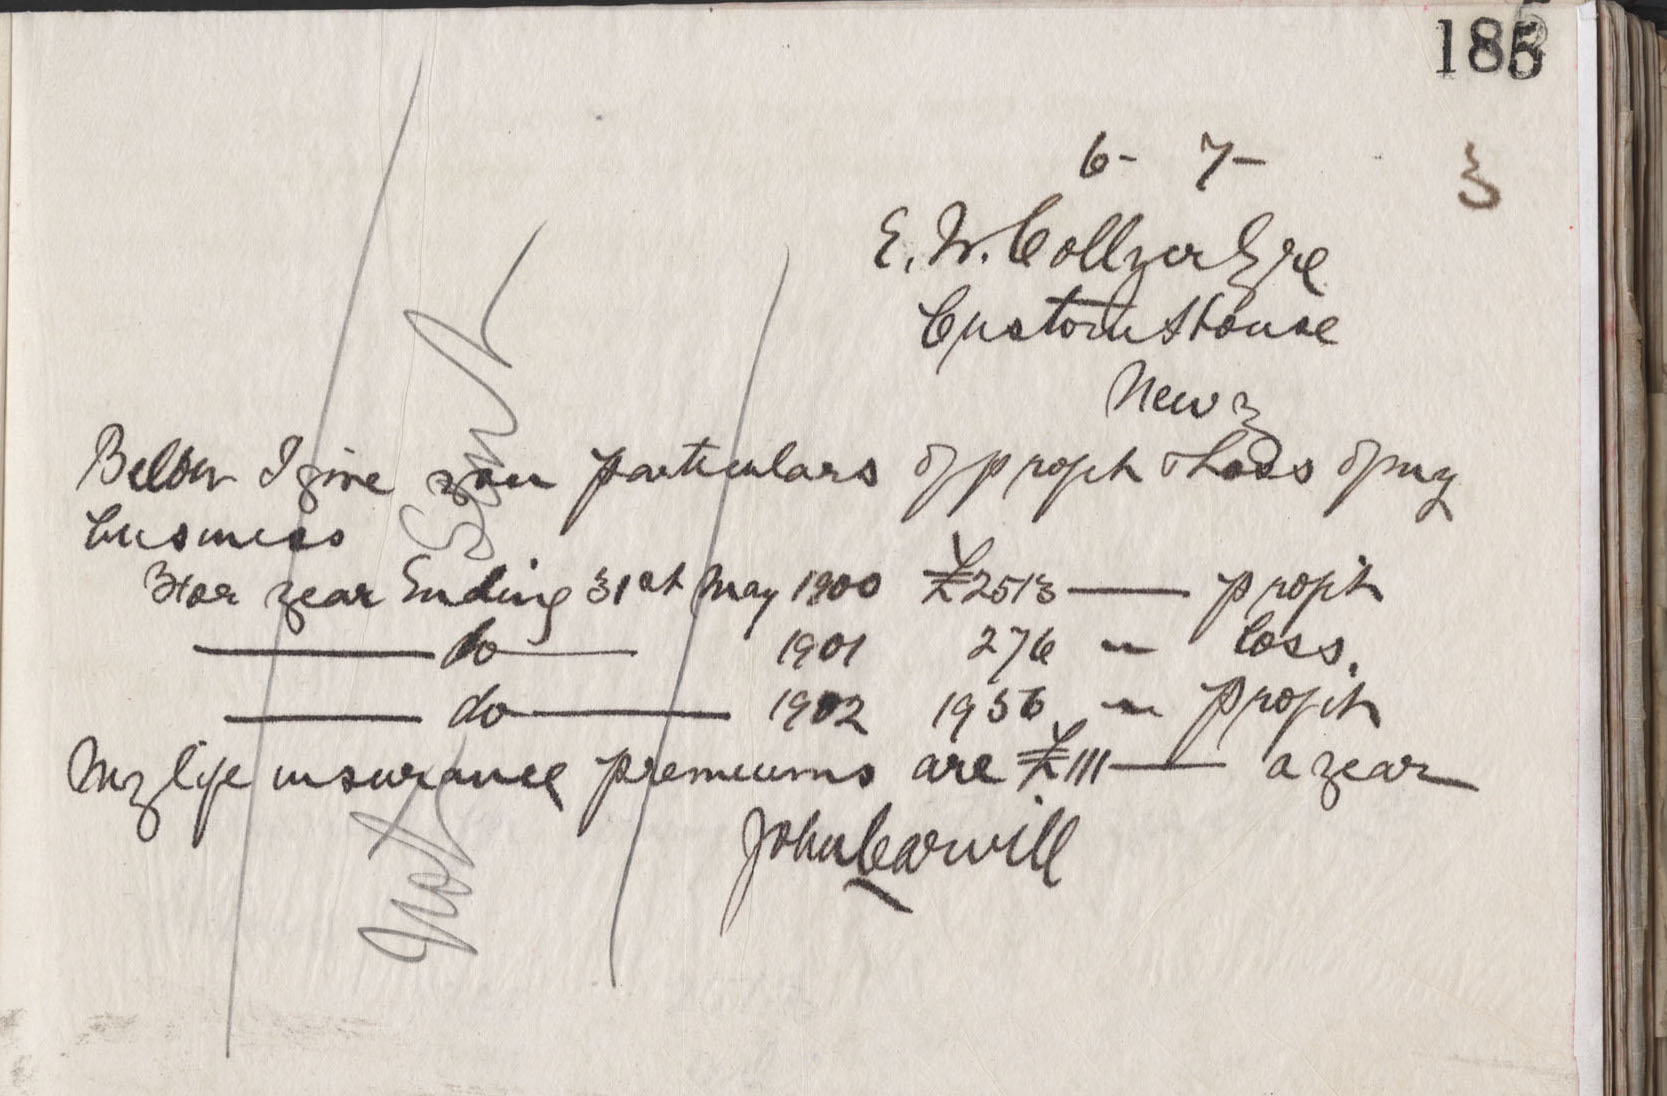 185
6- 7-
3
E. W. Collyer Esqre
Custom House
Newry
Below I give you particulars of profit & Loss of my
business
For year Ending 31st May 1900 £2513 — profit
— do — 1901 276 " loss.
— do — 1902 1956 " profit
My life insurance premiums are £111 — a year
John Carvill
Not Sent